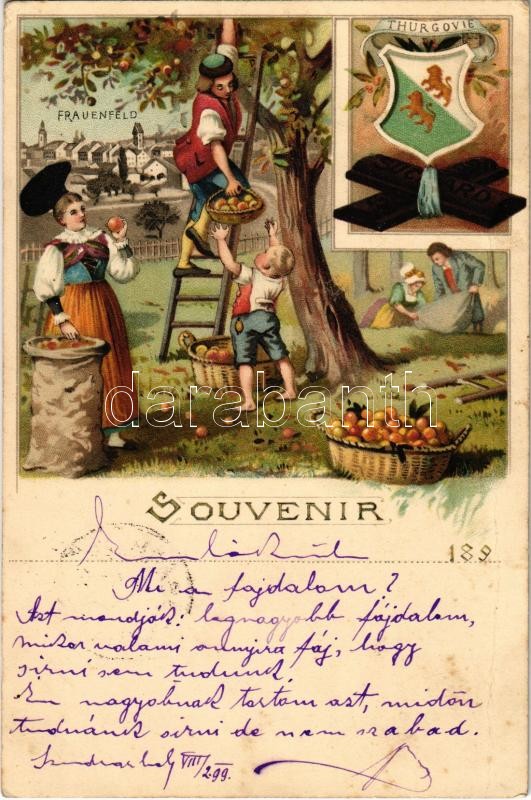 THURGOVIE
SUCHARD
FRAUENFELD
darabanth
SOUVENIR
189
Mi a fajdalom?
Azt mondják: legnagyobb fájdalom,
mikor valami annyira fáj, hogy
sirni sem tudunk.
Én nagyobnak tartom azt, midőn
tudnánk sirni de nem szabad.
VIII/2 99.